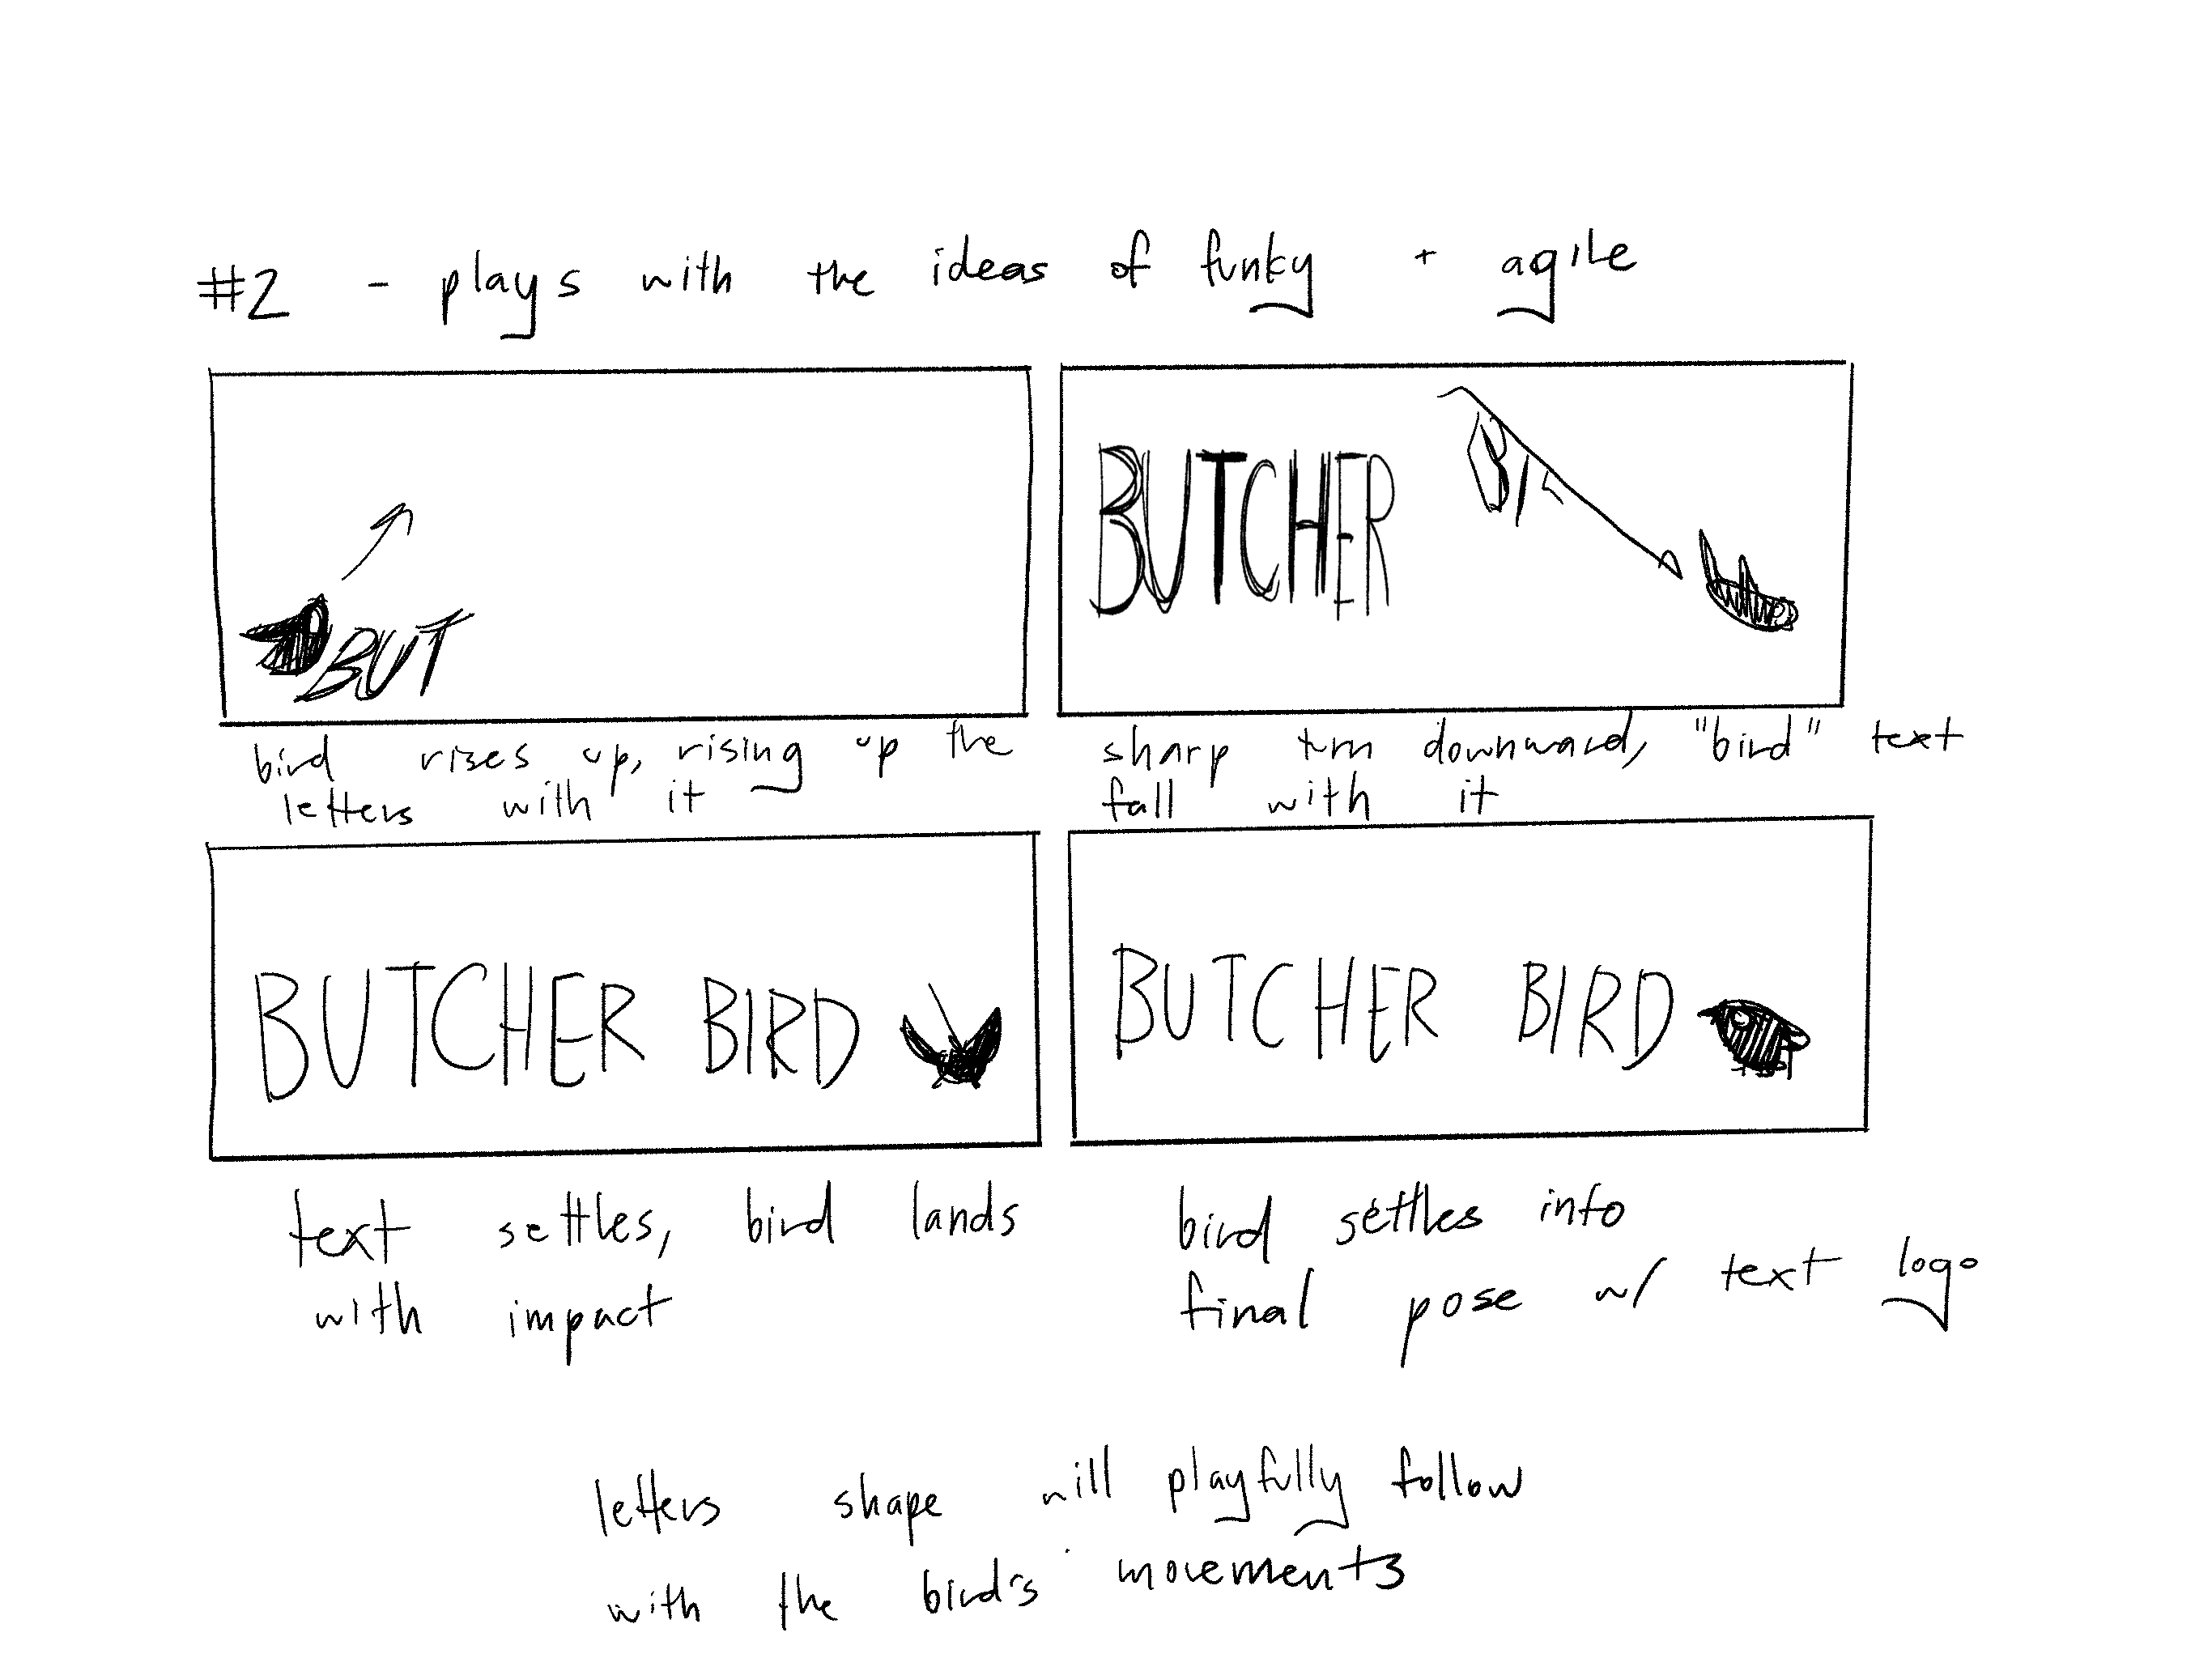 #2 - plays with the ideas of funky + agile
BUT
bird rises up, rising up the
letters with it
BUTCHER BIR
sharp turn downward, "bird" text
fall with it
BUTCHER BIRD
text settles, bird lands
with impact
BUTCHER BIRD
bird settles into
final pose w/ text logo
letters shape will playfully follow
with the bird's movements